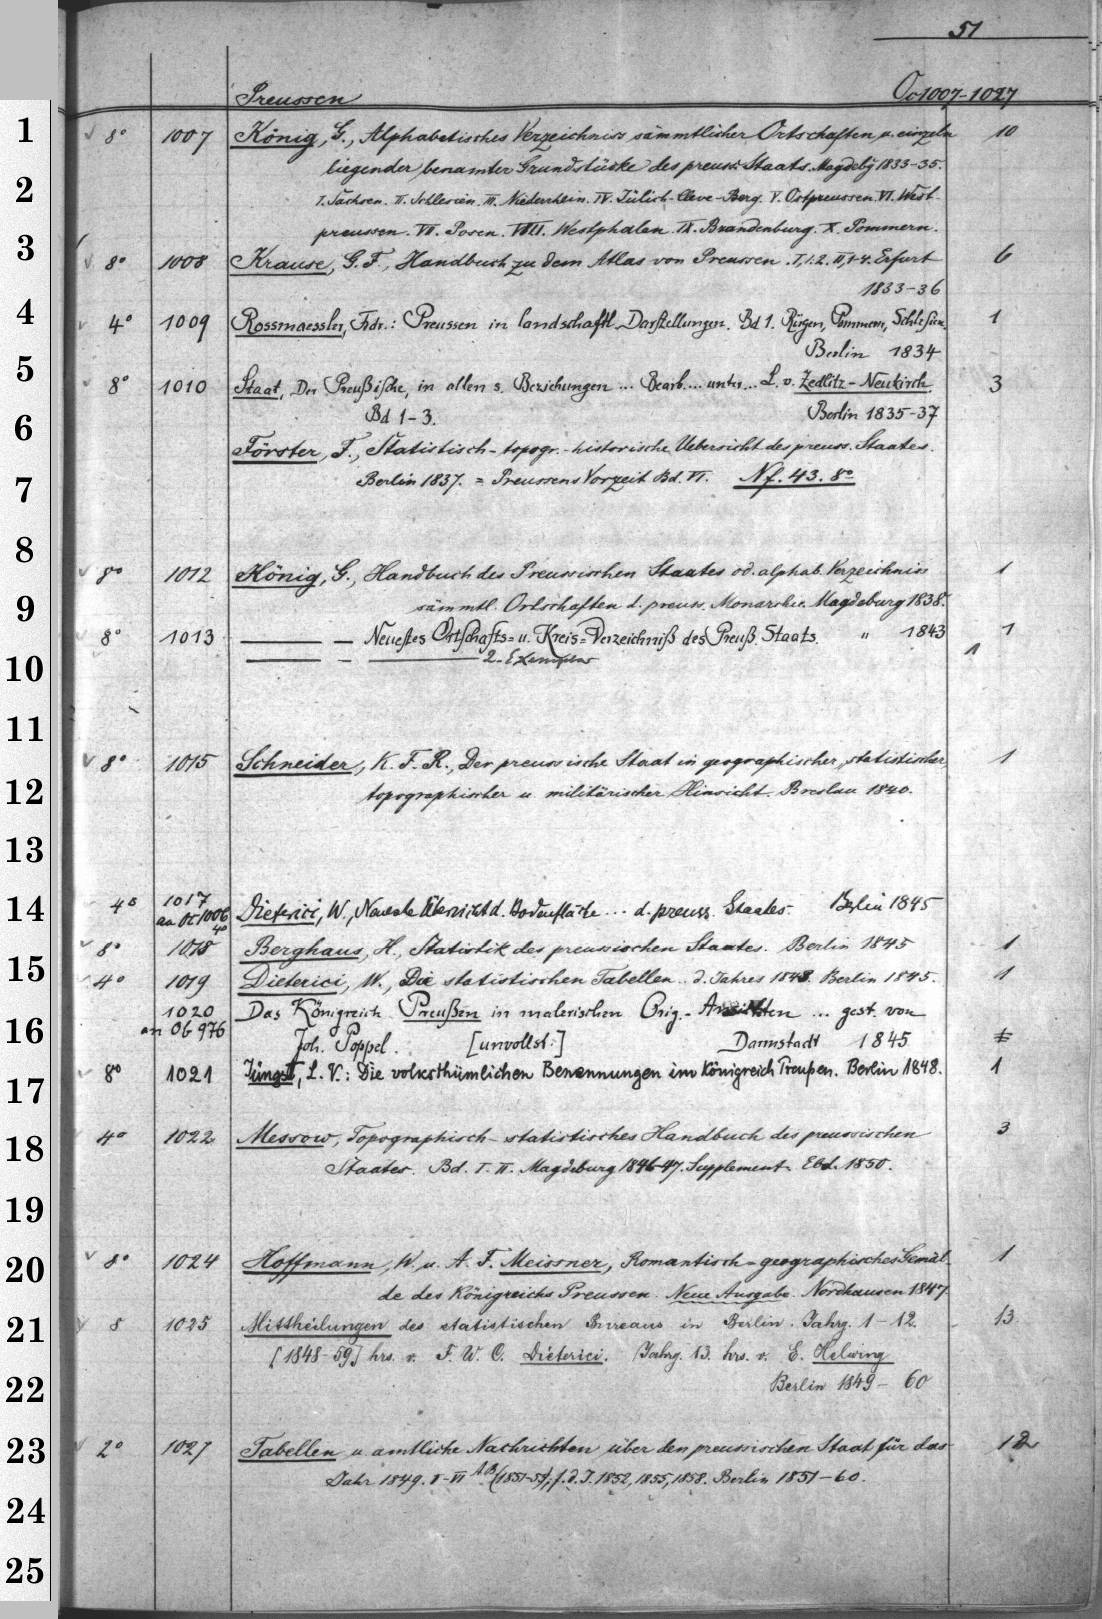 51
Preussen Oc 1007-1027
8° 1007 König, G., Alphabetisches Verzeichniss sämmtlicher Ortschaften u. einzeln 10
liegender benamter Grundstücke des preuss. Staats. Magdebg 1833-35.
I. Sachsen. II. Schlesien. III. Niederrhein. IV. Jülich-Cleve-Berg. V. Ostpreussen. VI. West-
preussen. VII. Posen. VIII. Westphalen. IX. Brandenburg. X. Pommern.
8° 1008 Krause, G. F., Handbuch zu dem Atlas von Preussen. I,1.2. II,1-4. Erfurt 6
1833-36
4° 1009 Rossmaessler, Frdr.: Preussen in landschaftl. Darstellungen. Bd 1. Rügen, Pommern, Schlesien. 1
Berlin 1834
8° 1010 Staat, Der Preußische, in allen s. Beziehungen ... Bearb. ... unter ... L. v. Zedlitz-Neukirch. 3
Bd 1-3. Berlin 1835-37
Förster, F., Statistisch-topogr.-historische Uebersicht des preuss. Staates.
Berlin 1837. = Preussens Vorzeit Bd. VI. Nf. 43. 8°
8° 1012 König, G., Handbuch des Preussischen Staates od. alphab. Verzeichniss 1
sämmtl. Ortschaften d. preuss. Monarchie. Magdeburg 1838.
8° 1013 — — Neuestes Ortschafts= u. Kreis=Verzeichniß des Preuß. Staats. " 1843 1
— — — 2. Exemplar 1
8° 1015 Schneider, K. F. R., Der preussische Staat in geographischer, statistischer, 1
topographischer u. militärischer Hinsicht. Breslau 1840.
4° 1017 an Oc 1006 4° Dieterici, W., Neueste Übersicht d. Bodenfläche ... d. preuss. Staates. Berlin 1845
8° 1018 Berghaus, H., Statistik des preussischen Staates. Berlin 1845 1
4° 1019 Dieterici, W., Die statistischen Tabellen .. d. Jahres 1843. Berlin 1845. 1
1020 Das Königreich Preußen in malerischen Orig.-Ansichten ... gest. von
an Ob 976 Joh. Poppel. [unvollst.] Darmstadt 1845
8° 1021 Jüngst, L. V.: Die volksthümlichen Benennungen im Königreich Preußen. Berlin 1848. 1
4° 1022 Messow, Topographisch-statistisches Handbuch des preussischen 3
Staates. Bd. I. II. Magdeburg 1846-47. Supplement. Ebd. 1850.
8° 1024 Hoffmann, W. u. A. F. Meissner, Romantisch-geographisches Gemäl- 1
de des Königreichs Preussen. Neue Ausgabe. Nordhausen 1847.
8 1025 Mittheilungen des statistischen Bureaus in Berlin. Jahrg. 1-12. 13
[1848-59] hrs. v. F. W. C. Dieterici. Jahrg. 13. hrs. v. E. Helwing
Berlin 1849-60
2° 1027 Tabellen u. amtliche Nachrichten über den preussischen Staat für das 12
Jahr 1849. I-VI A.B. (1851-55); f. d. J. 1852, 1855, 1858. Berlin 1851-60.
1
2
3
4
5
6
7
8
9
10
11
12
13
14
15
16
17
18
19
20
21
22
23
24
25